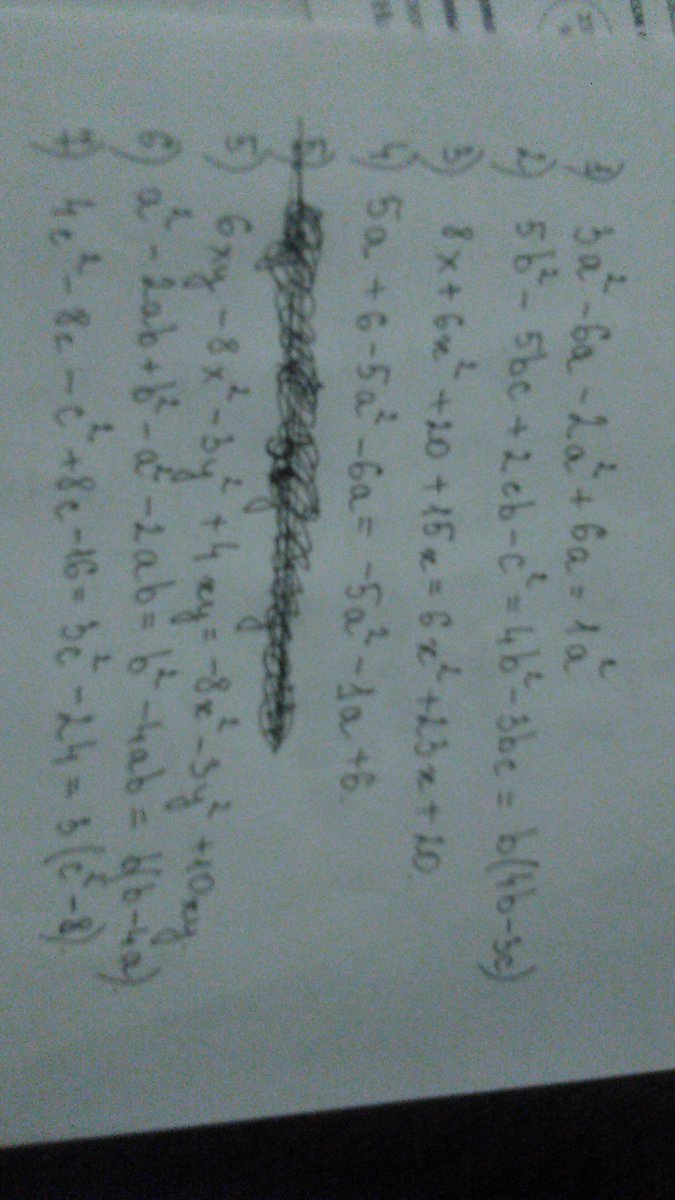 1) 3a² - 6a - 2a² + 6a = 1a²
2) 5b² - 5bc + 2cb - c² = 4b² - 3bc = b(4b-3c)
3) 8x + 6x² + 20 + 15x = 6x² + 23x + 20
4) 5a + 6 - 5a² - 6a = -5a² - 1a + 6.
5) 6xy - 8x² - 3y² + 4xy = -8x² - 3y² + 10xy
6) a² - 2ab + b² - a² - 2ab = b² - 4ab = b(b-4a)
7) 4c² - 8c - c² + 8c - 16 = 3c² - 24 = 3(c² - 8)